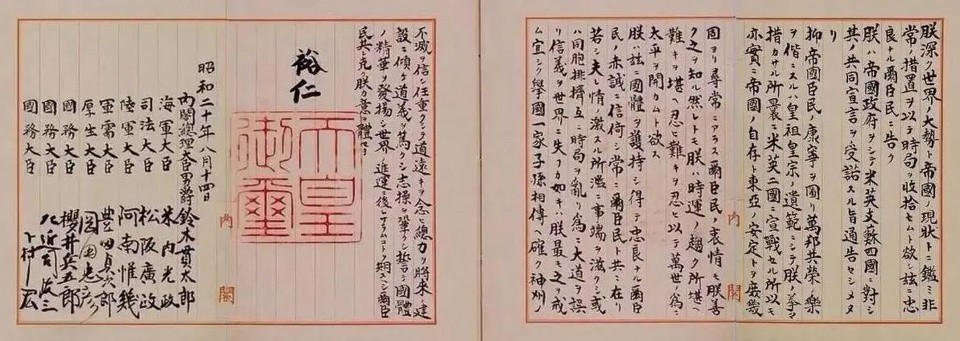 朕深ク世界ノ大勢ト帝國ノ現狀トニ鑑ミ非
常ノ措置ヲ以テ時局ヲ收拾セムト欲シ茲ニ忠
良ナル爾臣民ニ告ク
朕ハ帝國政府ヲシテ米英支蘇四國ニ對シ
其ノ共同宣言ヲ受諾スル旨通告セシメタ
リ
抑帝國臣民ノ康寧ヲ圖リ萬邦共榮ノ樂
ヲ偕ニスルハ皇祖皇宗ノ遺範ニシテ朕ノ拳々
措カサル所曩ニ米英二國ニ宣戰セル所以モ
亦實ニ帝國ノ自存ト東亞ノ安定トヲ庶幾
内閣
固ヨリ尋常ニアラス爾臣民ノ衷情モ朕善
ク之ヲ知ル然レトモ朕ハ時運ノ趨ク所堪ヘ
難キヲ堪ヘ忍ヒ難キヲ忍ヒ以テ萬世ノ爲ニ
太平ヲ開カムト欲ス
朕ハ茲ニ國體ヲ護持シ得テ忠良ナル爾臣
民ノ赤誠ニ信倚シ常ニ爾臣民ト共ニ在リ
若シ夫レ情ノ激スル所濫ニ事端ヲ滋クシ或
ハ同胞排擠互ニ時局ヲ亂リ爲ニ大道ヲ誤
リ信義ヲ世界ニ失フカ如キハ朕最モ之ヲ戒
ム宜シク擧國一家子孫相傳ヘ確ク神州ノ
不滅ヲ信シ任重クシテ道遠キヲ念ヒ總力ヲ將來ノ建
設ニ傾ケ道義ヲ篤クシ志操ヲ鞏クシ誓テ國體
ノ精華ヲ發揚シ世界ノ進運ニ後レサラムコトヲ期スヘシ爾臣
民其レ克ク朕カ意ヲ體セヨ
裕仁
天皇
御璽
内閣
昭和二十年八月十四日
内閣總理大臣男爵 鈴木貫太郎
海軍大臣 米内光政
司法大臣 松阪廣政
陸軍大臣 阿南惟幾
軍需大臣 豊田貞次郎
厚生大臣 岡田忠彦
國務大臣 櫻井兵五郎
國務大臣 左近司政三
國務大臣 下村宏